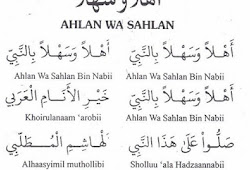 أهلا وسهلا
AHLAN WA SAHLAN
أَهْلاً وَسَهْلاً بِالنَّبِيِّ أَهْلاً وَسَهْلاً بِالنَّبِيِّ
Ahlan Wa Sahlan Bin Nabii Ahlan Wa Sahlan Bin Nabii
أَهْلاً وَسَهْلاً بِالنَّبِيِّ خَيْرِ الْأَنَامِ الْعَرَبِي
Khoirulanaam 'arobii Ahlan Wa Sahlan Bin Nabii
صَلُّوا عَلَى هَذَا النَّبِي لْهَاشِمِ الْمُطَّلِبِي
Alhaasyimil mutholibi Sholluu 'ala Hadzaannabii